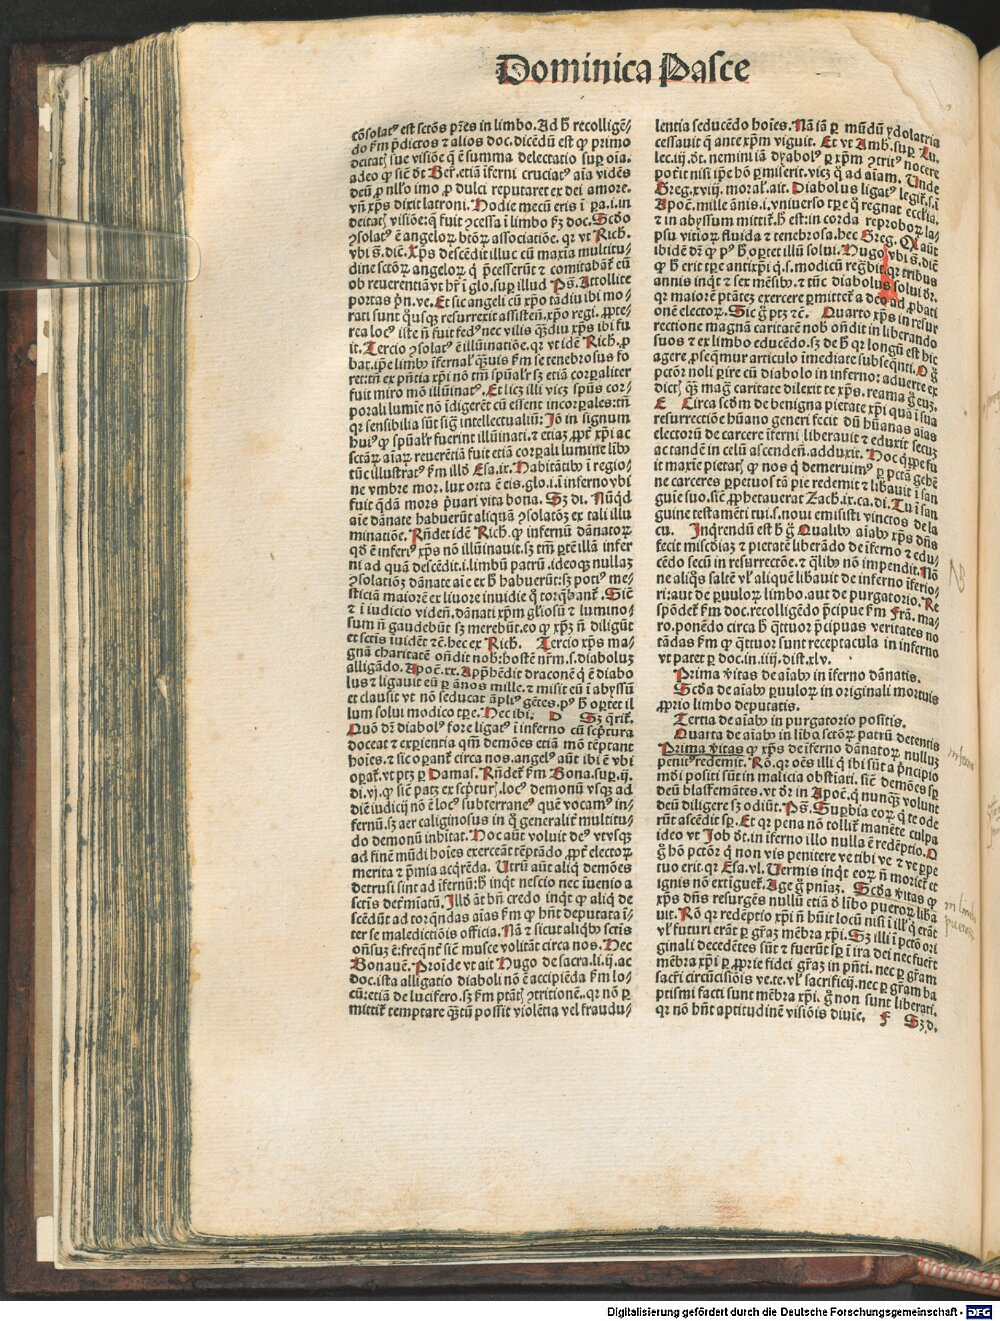 Dominica Pasce
cõsolatꝰ est sctõs pr̃es in limbo. Ad h̃ recolligẽ/
do ẜm p̃dictos ⁊ alios doc. dicẽdũ est ꝙ primo
deitatꝭ sue visiõe q̃ ẽ summa delectatio suꝑ oĩa.
adeo ꝙ sicẽ d̃t Ber̃. etiã ĩferni cruciatꝰ aĩa vidẽs
deũ ꝓ nl̃lo imo ꝓ dulci reputaret ex dei amore.
vñ xp̃s dixit latroni. Hodie mecũ eris ĩ ꝑa. i. in
deitatꝭ visiõe: q̃ fuit ꝯcessa ĩ limbo ẜꝫ doc. Scðo
ꝯsolatꝰ ẽ angeloꝝ bt̃oꝝ associatiõe. qr vt Rich.
vbi s̃. dic̃. Xp̃s descẽdit illuc cũ maxia multitu/
dine sctõꝝ angeloꝝ q̃ p̃cesserũt ⁊ comitabãt̃ eũ
ob reuerentiã vt hr̃ ĩ glo. suꝑ illud Ps̃. Attollite
portas p̃n. ve. Et sic angeli cũ xp̃o tãdiu ibi mo/
rati sunt q̃usqꝫ resurrexit assisteñ. xp̃o regi. ꝓpte/
rea locꝰ iste ñ fuit fedꝰ nec vilis q̃ꝫdiu xp̃s ibi fu
it. Tercio ꝯsolatꝰ ẽ illũinatiõe. qr vt idẽ Rich. ꝓ
bat. ip̃e limbꝰ ĩfernal̃ q̃ꝫuis ẜm se tenebrosus fo
ret: tñ ex pñtia xp̃i nõ tm̃ spũal̃r sꝫ etiã corꝑaliter
fuit miro mõ illũinatꝰ. Et licꝫ illi vicꝫ spũs cor/
porali lumĩe nõ ĩdigerẽt cũ essent incorꝑales: tñ
qr sensibilia sũt sig̃ intellectualiũ: Jõ in signum
huiꝰ ꝙ spũal̃r fuerint illũinati. ⁊ etiaꝫ ꝓpt̃ xp̃i ac
sctãꝝ aĩaꝝ reuerẽtiã fuit etiã corꝑali lumine libꝰ
tũc illustratꝰ ẜm illð Esa. ix. Habitãtibꝰ ĩ regio/
ne vmbre mor. lux orta ẽ eis. glo. i. ĩ inferno vbi
fuit q̃dã mors p̃uari vita bona. Sꝫ di. Nũqd
aĩe dãnate habuerũt aliquã ꝯsolatõꝫ ex tali illu
minatiõe. Rñdet idẽ Rich. ꝙ infernũ dãnatoꝝ
qð ẽ inferiꝰ xp̃s nõ illũinauit. sꝫ tm̃ ꝑtẽ illã infer
ni ad quã descẽdit. i. limbũ patrũ. ideoqꝫ nullaꝫ
ꝯsolatiõꝫ dãnate aĩe ex h̃ habuerũt: sꝫ potiꝰ me/
sticiã maiorẽ ex liuore inuidie q̃ torq̃bant̃. Sicẽ
⁊ ĩ iudicio videñ. dãnati xp̃m gl̃iosũ ⁊ lumino/
sum ñ gaudebũt sꝫ merebũt. eo ꝙ xp̃ꝫ ñ diligũt
et sctis iuidẽt ⁊c̃. hec ex Rich. Tercio xp̃s ma/
gnã charitatẽ oñdit nob̃: hostẽ nr̃m. s. diaboluꝫ
alligãdo. Apoc̃. xx. Apphẽdit draconẽ q̃ ẽ diabo
lus ⁊ ligauit eũ ꝑ ãnos mille. ⁊ misit eũ ĩ abyssũ
et clausit vt nõ seducat ãpliꝰ gẽtes. pꝰ h̃ oꝑtet il
lum solui modico tꝑe. Hec ibi. D Sꝫ q̃rit̃.
Quõ dr̃ diabolꝰ fore ligatꝰ ĩ inferno cũ sc̃ptura
doceat ⁊ exꝑientia qm̃ demões etiã mõ tẽptant
hoĩes. ⁊ sic oꝑant̃ circa nos. angelꝰ aũt ibi ẽ vbi
oꝑat̃. vt ptꝫ ꝑ Damas. Rñdet̃ ẜm Bona. suꝑ. ij.
di. vj. ꝙ sicẽ patꝫ ex sc̃pturꝭ. locꝰ demonũ vsqꝫ ad
diẽ iudicij nõ ẽ locꝰ subterraneꝰ quẽ vocamꝰ in/
fernũ. sꝫ aer caliginosus in q̃ generalit̃ multitu/
do demonũ inh̃itat. Hoc aũt voluit deꝰ vtvsqꝫ
ad finẽ mũdi hoĩes exerceãt tẽptãdo ꝓpt̃ electoꝝ
merita ⁊ p̃mia acq̃rẽda. Utrũ aũt aliq̃ demões
detrusi sint ad ĩfernũ: h̃ inq̃t nescio nec iuenio a
sctis det̃miatũ. Illð ãt bñ credo inq̃t ꝙ aliq̃ de
scẽdũt ad torq̃ndas aĩas ẜm ꝙ hñt deputata ĩ/
ter se maledictiõis officia. Nã ⁊ sicut aliqbꝰ sctis
oñsuꝫ ẽ: freq̃nt̃ sicẽ musce volitãt circa nos. Hec
Bonauẽ. Proĩde vt ait Hugo de sacra. li. ij. ac
doc. ista alligatio diaboli nõ ẽ accipiẽda ẜm lo/
cũ: etiã de lucifero. sꝫ ẜm ptãtꝭ ꝯtritionẽ.. qr nõ ꝑ
mittit̃ temptare q̃ꝫtũ possit violẽtia vel fraudu/
lentia seducẽdo hoĩes. Nã iã ꝑ mũdũ ydolatria
cessauit q̃ ante xp̃m viguit. Et vt Amb. suꝑ Lu.
lec. iij. d̃t. nemini iã dyabolꝰ ꝑ xp̃m ꝯtritꝰ nocere
potĩt nisi ip̃e hõ ꝑmiserit. vicꝫ q̃ ad aĩam. Unde
Greg. xviij. moral̃. ait. Diabolus ligatꝰ legit̃. s. ĩ
Apoc̃. mille ãnis. i. vniuerso tꝑe q̃ regnat eccl̃ia.
⁊ in abyssum mittit̃. h̃ est: in corda reproboꝝ la/
psu vitioꝝ fluida ⁊ tenebrosa. hec Greg. Qð aũt
ibidẽ dr̃ ꝙ pꝰ h̃ oꝑtet illũ solui. Hugo vbi s̃. dic̃
ꝙ h̃ erit tꝑe antixp̃i q̃. s. modicũ regbit̃. qr tribus
annis inq̃t ⁊ sex mẽsibꝰ. ⁊ tũc diabolus solui dr̃.
qr maiorẽ ptãteꝫ exercere ꝑmittet̃ a deo ad ꝓbati
onẽ electoꝝ. Sic g̃ ptꝫ ⁊c̃. Quarto xp̃s in resur
rectione magnã caritatẽ nob̃ oñdit in liberando
suos ⁊ ex limbo educẽdo. sꝫ de h̃ qr longũ est hic
agere ꝓseq̃mur articulo ĩmediate subseq̃nti. O g̃
pctõr noli ꝑire cũ diabolo in inferno: aduerte ex
dictꝭ q̃ꝫ mag̃ caritate dilexit te xp̃s. reama g̃ euꝫ.
E Circa scðm de benigna pietate xp̃i qua ĩ sua
resurrectiõe hũano generi fecit dũ hũanas aĩas
electorũ de carcere ĩferni liberauit ⁊ eduxit secuꝫ
ac tandẽ in celũ ascendeñ. adduxit. Hoc q̃ppe fu
it maxĩe pietatꝭ ꝙ nos q̃ demeruimꝰ ꝑ pctã gehẽ
ne carceres ꝑpetuos tã pie redemit ⁊ libauit ĩ san
guie suo. sic̃ ꝓphetauerat Zach. ix. ca. di. Tu ĩ san
guine testamẽti tui. s. noui emisisti vinctos de la
cu. Inq̃rendũ est h̃ g̃ Qualibꝰ aĩabꝰ xp̃s dñs
fecit misc̃diaꝫ ⁊ pietatẽ liberãdo de ĩferno ⁊ edu/
cẽdo secũ in resurrectiõe. ⁊ q̃libꝰ nõ impendit. Nõ
ne aliq̃s saltẽ vl̃ aliquẽ libauit de inferno ĩferio/
ri: aut de ꝑuuloꝝ limbo. aut de purgatorio. Re
spõdet̃ ẜm doc. recolligẽdo p̃cipue ẜm Frã. ma/
ro. ponẽdo circa h̃ q̃ttuor p̃cipuas veritates no
tãdas ẜm ꝙ q̃ttuor sunt receptacula in inferno
vt patet ꝑ doc. in. iiij. dist. xlv.
Prima ṽitas de aĩabꝰ in ĩferno dãnatis.
Scða de aĩabꝰ ꝑuuloꝝ in originali mortuis
ꝓprio limbo deputatis.
Tertia de aĩabꝰ in purgatorio positis.
Quarta de aĩabꝰ in libo sctõꝝ patrũ detentis
Prima ṽitas ꝙ xp̃s de ĩferno dãnatoꝝ nulluꝫ
penitꝰ redemit. Rõ. qr oẽs illi q̃ ibi sũt a p̃ncipio
mũdi positi sũt in malicia obstĩati. sicẽ demões sꝑ
deũ blaffemãtes. vt dr̃ in Apoc̃. q̃ nunq̃ꝫ volunt
deũ diligere sꝫ odiũt. Ps̃. Suꝑbia eoꝝ q̃ te ode
rũt ascẽdit sꝑ. Et qr pena nõ tollit̃ manẽte culpa
ideo vt Job d̃t. in ĩferno illo nulla ẽ redẽptio. O
g̃ hõ pctõr q̃ non vis penitere ve tibi ve ⁊ ve ꝑpe
tuo erit. qr Esa. vl. Uermis inq̃t eoꝝ ñ moriet̃ et
ignis nõ extiguet̃. Age g̃ pniaꝫ. Scða ṽitas ꝙ
xp̃s dñs resurgẽs nullũ etiã ð libo pueroꝝ liba
uit. Rõ qr redẽptio xp̃i ñ hũit locũ nisi ĩ ill̃ q̃ erãt
vl̃ futuri erãt ꝑ gr̃aꝫ mẽbra xp̃i. Sꝫ illi ĩ pctõ ori
ginali decedẽtes sũt ⁊ fuerũt sꝑ ĩ ira dei nec fuer̃t
mẽbra xp̃i ꝑ ꝓprie fidei gr̃aꝫ in pñti. nec ꝑ gr̃am
sacr̃i circũcisiõis ve. te. vl̃ sacrificij. nec ꝑ gr̃am ba
ptismi facti sunt mẽbra xp̃i. g̃ non sunt liberati.
qr nõ hñt aptitudinẽ visiõis diuie. F Sꝫ d.
NB
in limbo
pueroꝝ
Digitalisierung gefördert durch die Deutsche Forschungsgemeinschaft - DFG